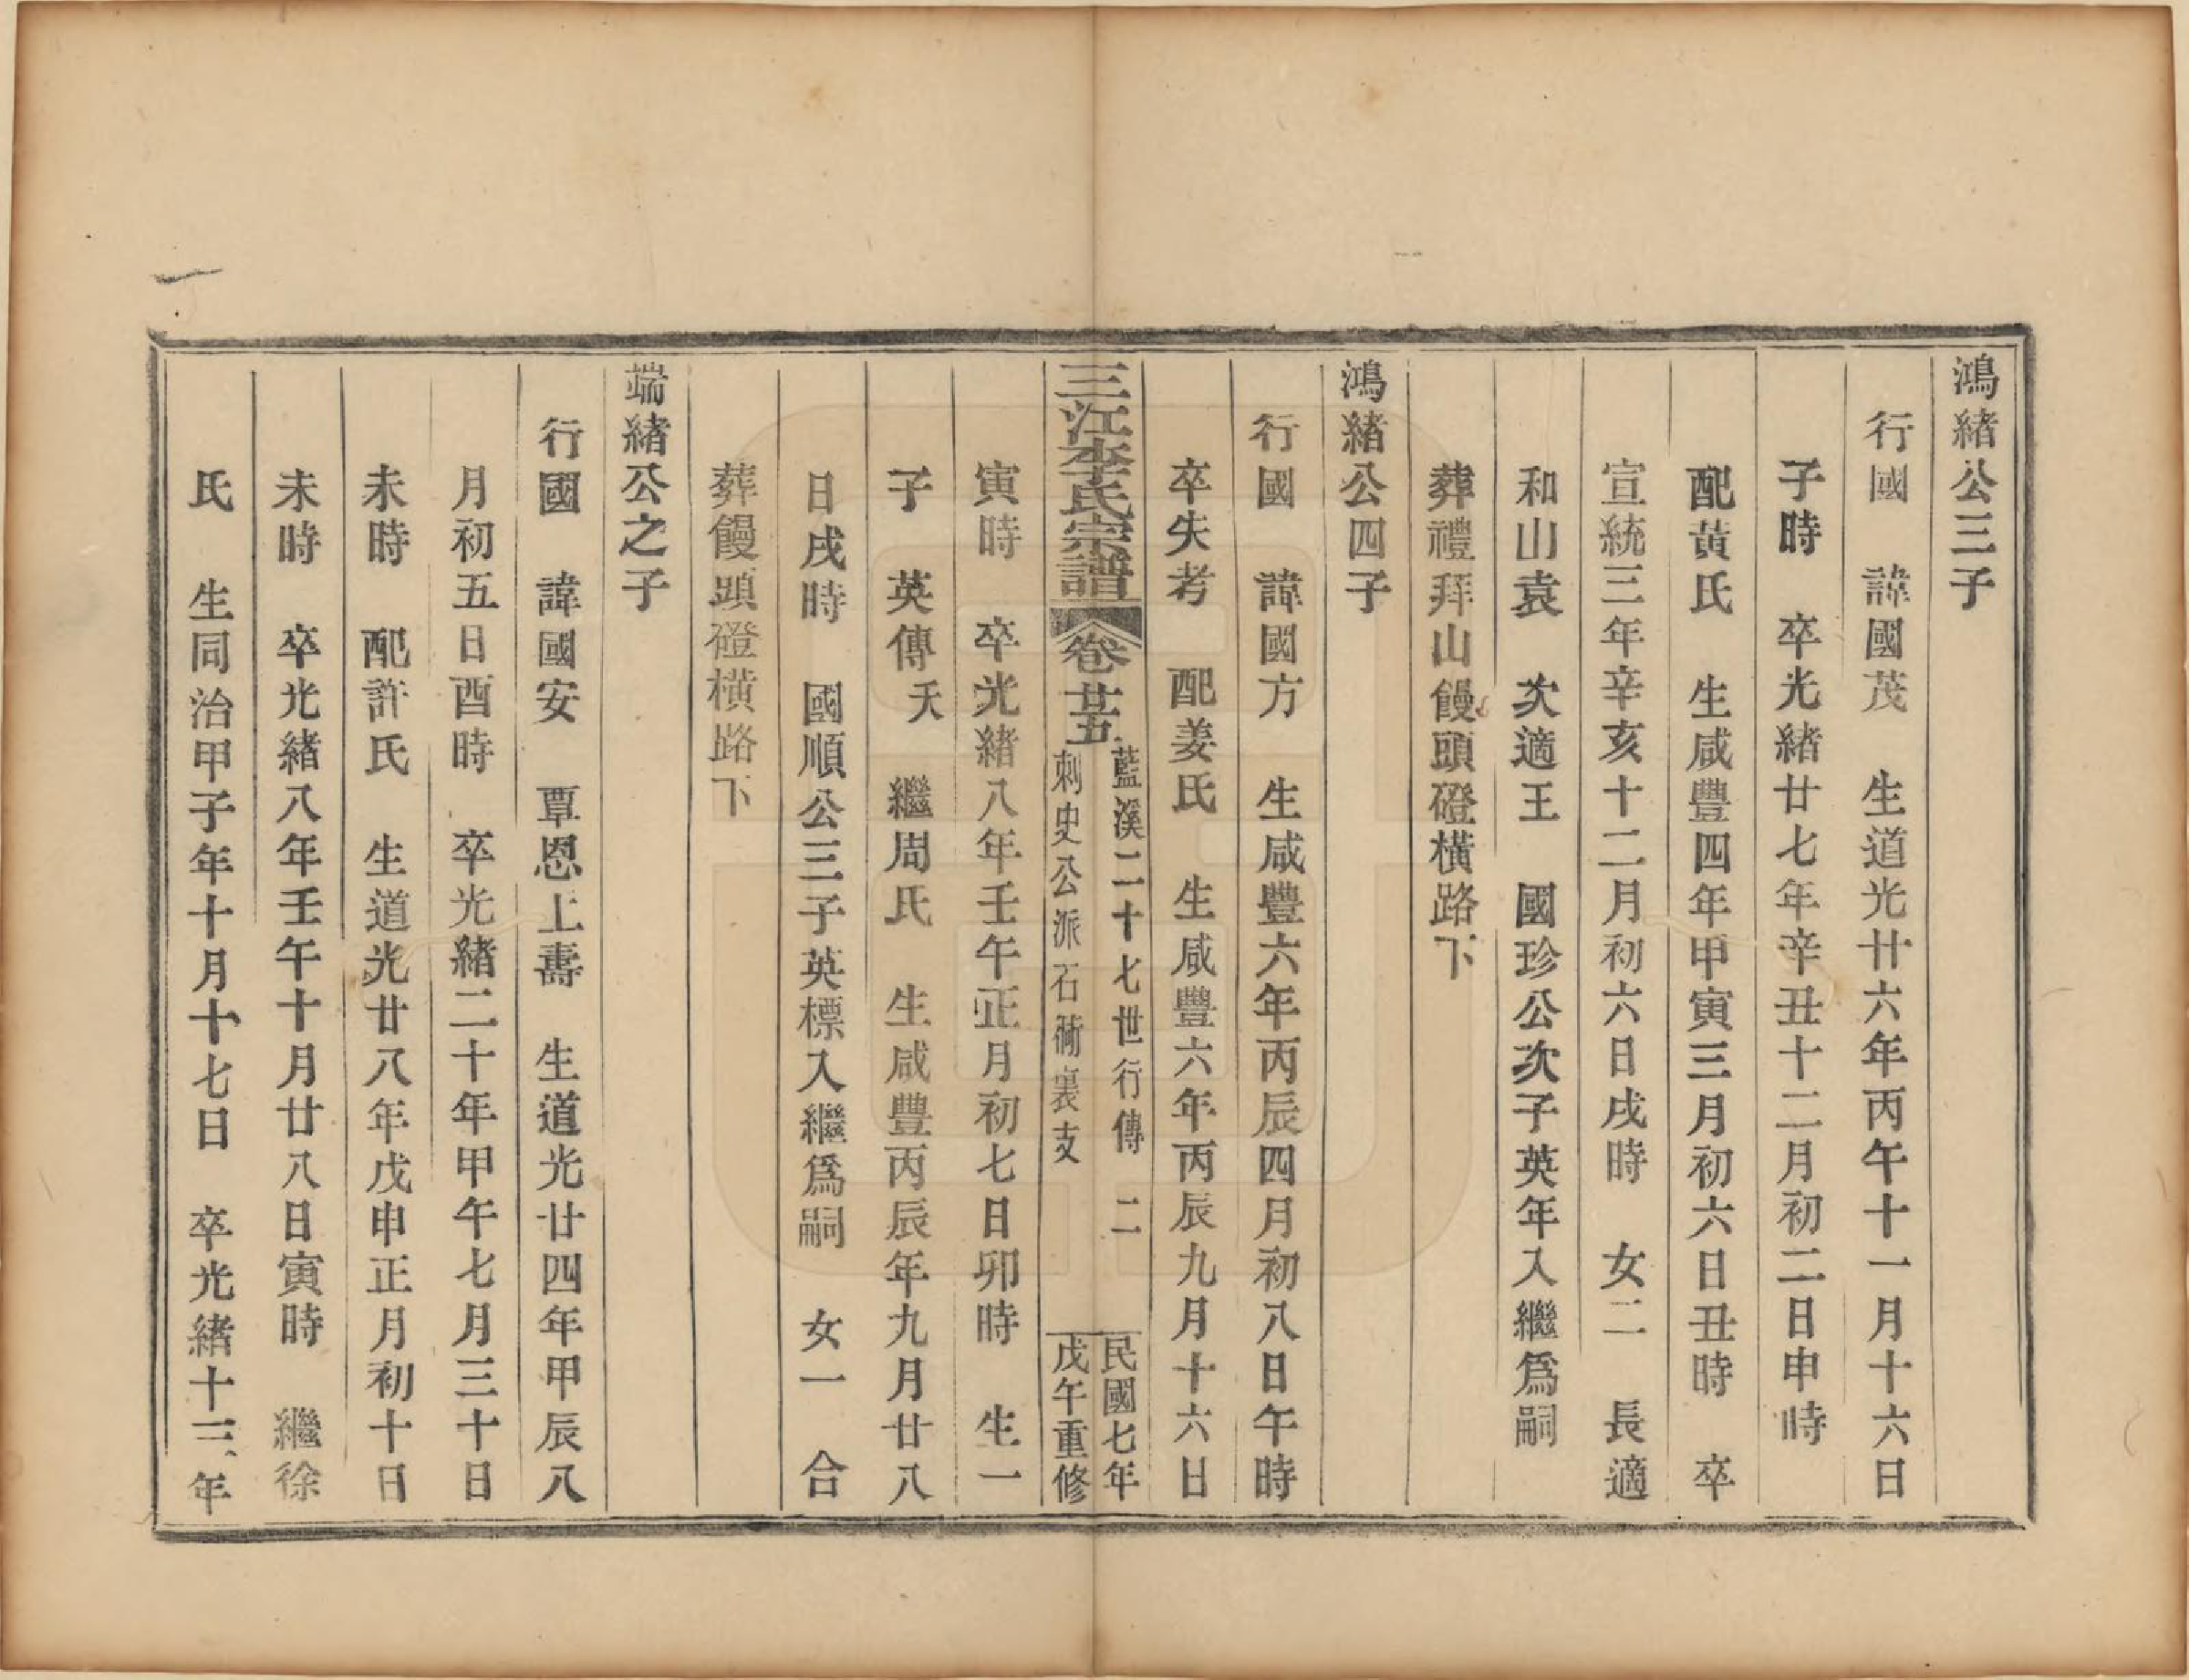 鴻緒公三子
行國 諱國茂 生道光廿六年丙午十一月十六日
子時 卒光緒廿七年辛丑十二月初二日申時
配黃氏 生咸豐四年甲寅三月初六日丑時 卒
宣統三年辛亥十二月初六日戌時 女二 長適
和山袁 次適王 國珍公次子英年入繼爲嗣
葬禮拜山饅頭磴橫路下
鴻緒公四子
行國 諱國方 生咸豐六年丙辰四月初八日午時
卒失考 配姜氏 生咸豐六年丙辰九月十六日
三江李氏宗譜 卷廿五 藍溪二十七世行傳 二 民國七年
刺史公派石衕裏支 戊午重修
寅時 卒光緒八年壬午正月初七日卯時 生一
子 英傳夭 繼周氏 生咸豐丙辰年九月廿八
日戌時 國順公三子英標入繼爲嗣 女一 合
葬饅頭磴橫路下
端緒公之子
行國 諱國安 覃恩上壽 生道光廿四年甲辰八
月初五日酉時 卒光緒二十年甲午七月三十日
未時 配許氏 生道光廿八年戊申正月初十日
未時 卒光緒八年壬午十月廿八日寅時 繼徐
氏 生同治甲子年十月十七日 卒光緒十三年